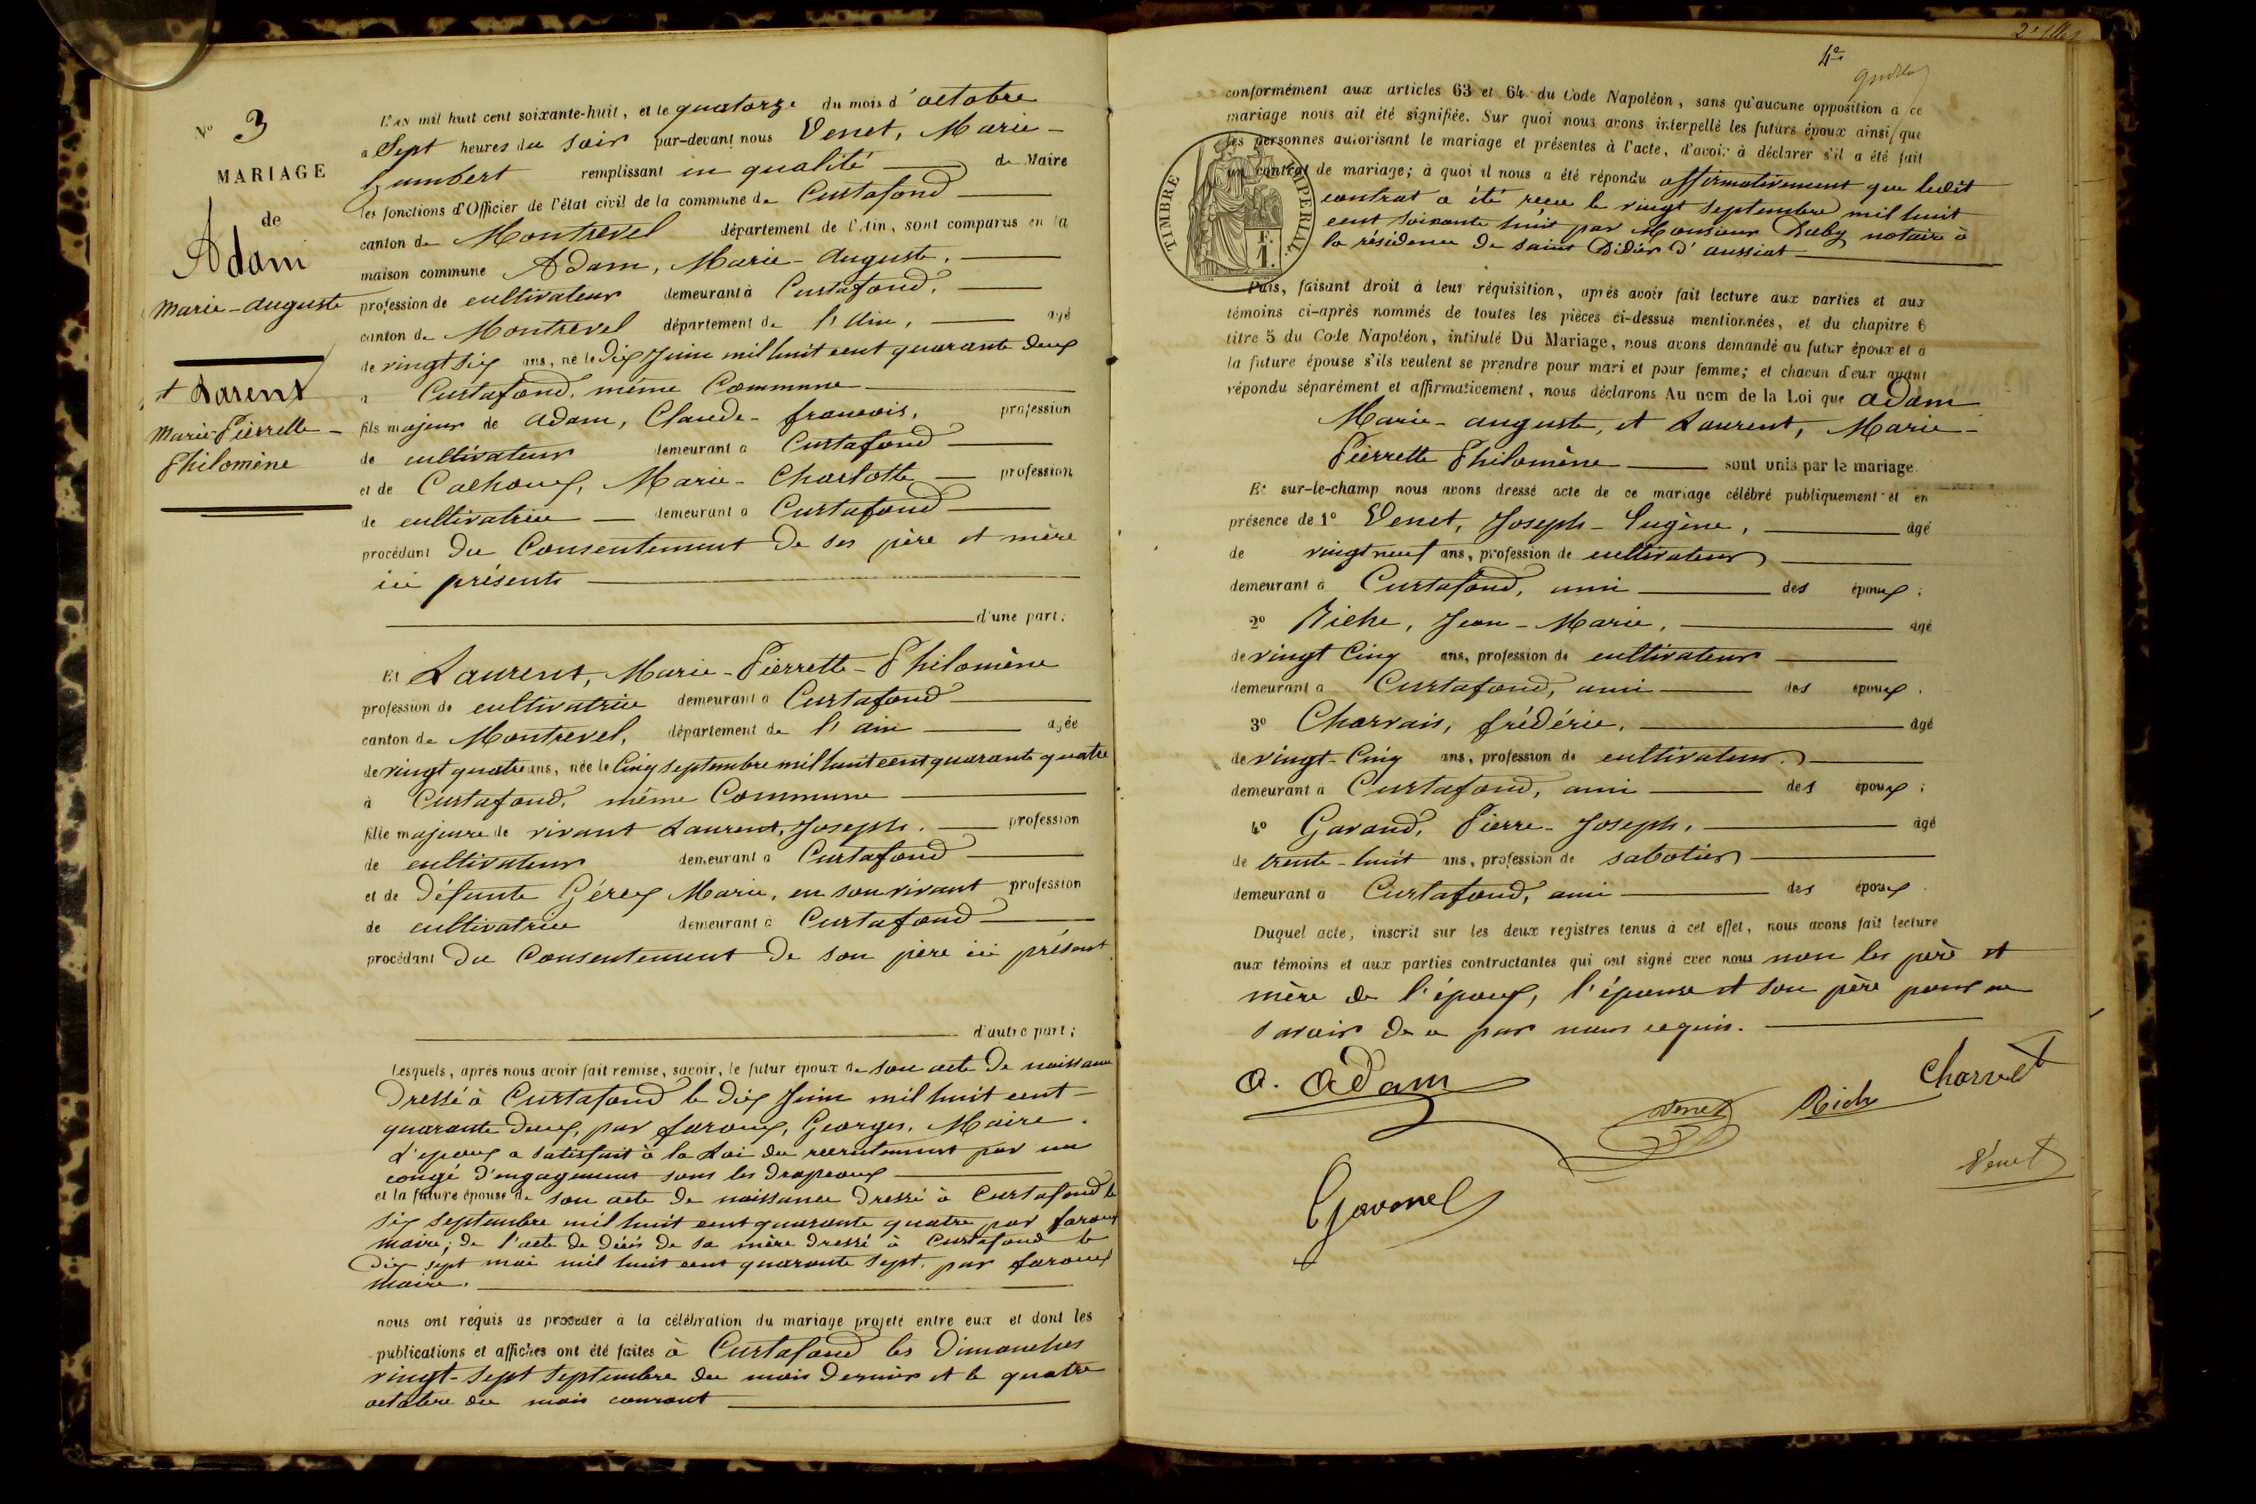 N° 3
MARIAGE
de
Adam
Marie-auguste
et Laurent
Marie Pierrette-
Philomène
L'an mil huit cent soixante-huit, et le quatorze du mois d'octobre
a Sept heures du soir par-devant nous Venet, Marie-
humbert remplissant en qualité de Maire
les fonctions d'Officier de l'état civil de la commune de Curtafond
canton de Montrevel département de l'Ain, sont comparus en la
maison commune Adam, Marie-auguste,
profession de cultivateur demeurant à Curtafond,
canton de Montrevel département de l'Ain, agé
de vingt six ans, né le Dix Juin mil huit cent quarante deux
a Curtafond, même Commune
fils majeur de adam, Claude-françois, profession
de cultivateur demeurant a Curtafond
et de Cachoux, Marie-Charlotte profession
de cultivatrice demeurant a Curtafond
procédant du Consentement de ses père et mère
ici présents
d'une part;
Et Laurent, Marie-Pierrette-Philomène
profession de cultivatrice demeurant a Curtafond
canton de Montrevel, département de l'ain agée
de vingt quatre ans, née le Cinq septembre mil huit cent quarante quatre
à Curtafond, même Commune
fille majeure de vivant Laurent, Joseph, profession
de cultivateur demeurant a Curtafond
et de Défunte Gérex Marie, en son vivant profession
de cultivatrice demeurant à Curtafond
procédant du Consentement de son père ici présent
d'autre part;
Lesquels, après nous avoir fait remise, savoir, le futur époux de son acte de naissance
Dressé à Curtafond le dix Juin mil huit cent-
quarante deux, par faroux, Georges, Maire.
L'epoux a satisfait à la Loi du recrutement par un
congé d'engagement sous les drapeaux
et la future épouse de son acte de naissance dressé à Curtafond le
six septembre mil huit cent quarante quatre par faroux
maire; de l'acte de décès de sa mère dressé à Curtafond le
dix sept mai mil huit cent quarante sept, par faroux
Maire.
nous ont requis de procéder à la célébration du mariage projeté entre eux et dont les
publications et affiches ont été faites à Curtafond les dimanches
vingt-sept septembre du mois dernier et le quatre
octobre du mois courant
4e
conformément aux articles 63 et 64 du Code Napoléon, sans qu'aucune opposition à ce
mariage nous ait été signifiée. Sur quoi nous avons interpellé les futurs époux ainsi que
les personnes autorisant le mariage et présentes à l'acte, d'avoir à déclarer s'il a été fait
un contrat de mariage; à quoi il nous a été répondu affirmativement que ledit
contrat a été reçu le vingt septembre mil huit
cent soixante huit par Monsieur Duby notaire à
la résidence de saint Didier d'aussiat
TIMBRE IMPERIAL
F.
1.
Puis, faisant droit à leur réquisition, après avoir fait lecture aux parties et aux
témoins ci-après nommés de toutes les pièces ci-dessus mentionnées, et du chapitre 6
titre 5 du Code Napoléon, intitulé Du Mariage, nous avons demandé au futur époux et à
la future épouse s'ils veulent se prendre pour mari et pour femme; et chacun d'eux ayant
répondu séparément et affirmativement, nous déclarons Au nom de la Loi que adam
Marie-auguste, et Laurent, Marie-
Pierrette Philomène sont unis par le mariage.
Et sur-le-champ nous avons dressé acte de ce mariage célébré publiquement et en
présence de 1° Venet, Joseph-Eugène, âgé
de vingt neuf ans, profession de cultivateur
demeurant à Curtafond, ami des époux;
2° Riche, Jean-Marie, âgé
de vingt Cinq ans, profession de cultivateur
demeurant a Curtafond, ami des époux.
3° Charvais, frédéric, âgé
de vingt-Cinq ans, profession de cultivateur.
demeurant à Curtafond, ami des époux;
4° Gavand, Pierre-Joseph, âgé
de trente-huit ans, profession de sabotier
demeurant a Curtafond, ami des époux
Duquel acte, inscrit sur les deux registres tenus à cet effet, nous avons fait lecture
aux témoins et aux parties contractantes qui ont signé avec nous non les père et
mère de l'époux, l'épouse et son père pour ne
savoir de ce par nous requis.
a. adam
Venet
Riche
Charvet
Venet